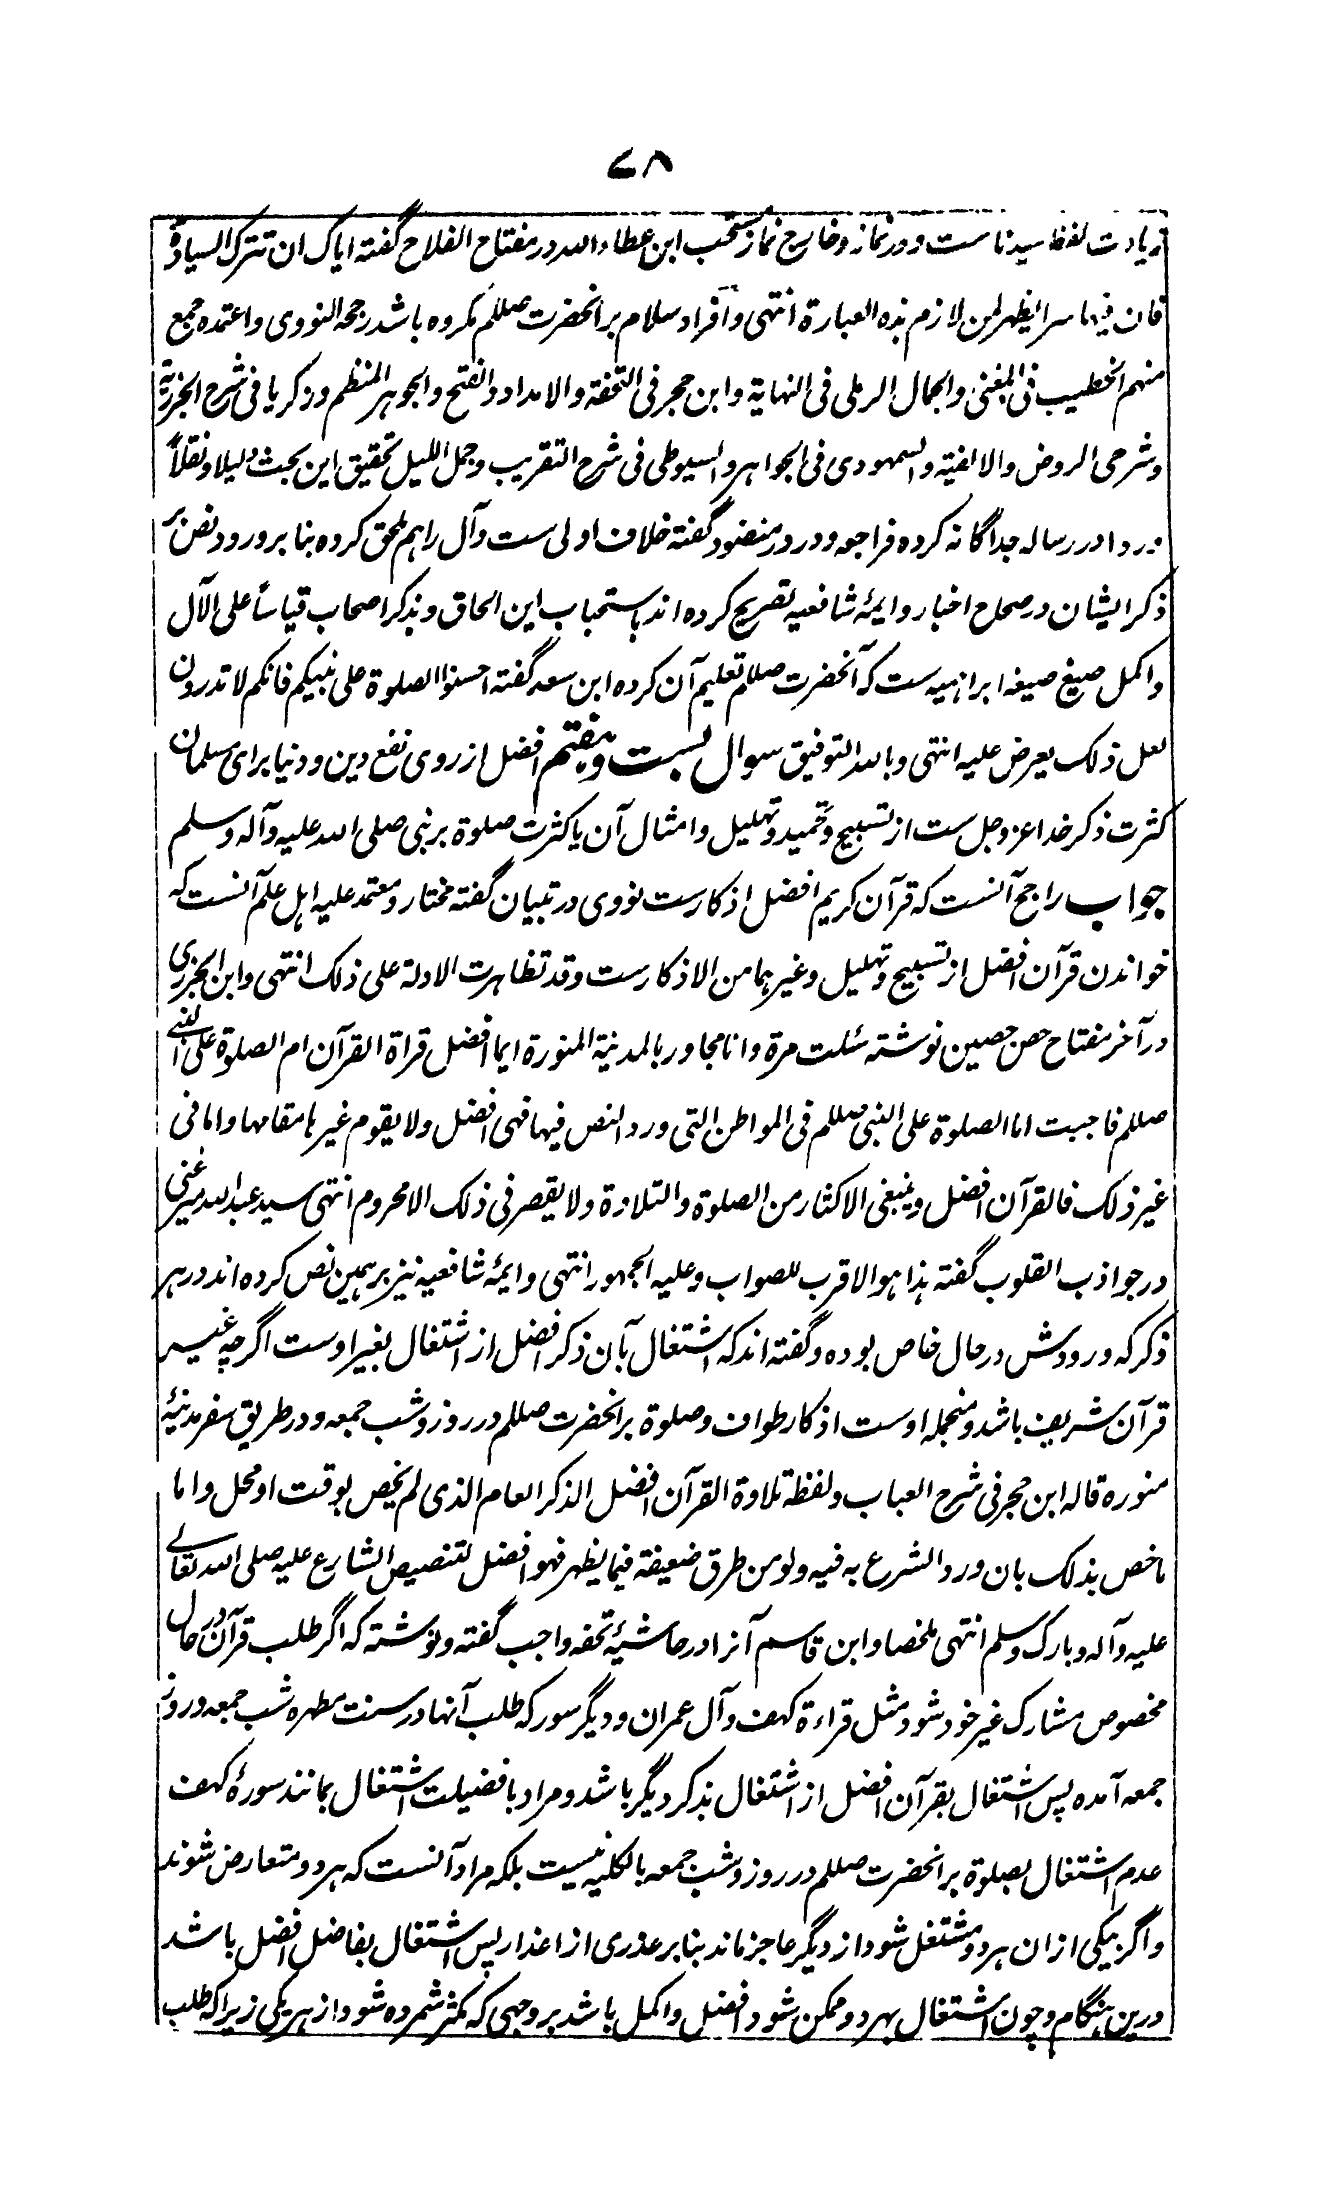 ۷۸
زیادت لفظ سیدناست و در نماز و خارج نماز مستحب ابن عطاء الله در مفتاح الفلاح گفته ایاک ان تترک السیادة
فان فیها سرا یظهر لمن لازم هذه العبارة انتهی و افراد سلام بر آنحضرت صللم مکروه باشد رجحه النووی و اعتمده جمع
منهم الخطیب فی المغنی و الجمال الرملی فی النهایة و ابن حجر فی التحفة و الامداد و الفتح و الجوهر المنظم و زکریا فی شرح الجزریة
و شرحی الروض و الالفیة و السمهودی فی الجواهر و السیوطی فی شرح التقریب و جمل اللیل تحقیق این بحث دلیلا و نقلاً
و ردا در رساله جداگانه کرده فراجعه و در در منضود گفته خلاف اولی ست و آل را هم ملحق کرده بنا بر ورود نص بر
ذکر ایشان در صحاح اخبار و ایمهٔ شافعیه تصریح کرده اند باستحباب این الحاق و بذکر اصحاب قیاساً علی الآل
و اکمل صیغ صیغه ابراهیمیه ست که آنحضرت صللم تعلیم آن کرده ابن سعد گفته احسنوا الصلوة علی نبیکم فانکم لا تدرون
لعل ذلک یعرض علیه انتهی و بالله التوفیق سوال بست و هفتم افضل از روی نفع دین و دنیا برای مسلمان
کثرت ذکر خدا عز و جل ست از تسبیح و تحمید و تهلیل و امثال آن یا کثرت صلوة بر نبی صلی الله علیه و آله و سلم
جواب راجح آنست که قرآن کریم افضل اذکارست نووی در تبیان گفته مختار و معتمد علیه اهل علم آنست که
خواندن قرآن افضل از تسبیح و تهلیل و غیرهما من الاذکارست و قد تظاهرت الادلة علی ذلک انتهی و ابن الجزری
در آخر مفتاح حصن حصین نوشته سئلت مرة و انا مجاور بالمدینة المنورة ایما افضل قراة القرآن ام الصلوة علی النبی
صللم فاجبت اما الصلوة علی النبی صللم فی المواطن التی ورد النص فیها فهی افضل و لا یقوم غیرها مقامها و اما فی
غیر ذلک فالقرآن افضل و ینبغی الاکثار من الصلوة و التلاوة و لا یقصر فی ذلک الا محروم انتهی سید عبد الله میرغنی
در جواذب القلوب گفته هذا هو الاقرب للصواب و علیه الجمهور انتهی و ایمهٔ شافعیه نیز بر همین نص کرده اند در هر
ذکر که ورودش در حال خاص بوده و گفته اند که اشتغال بآن ذکر افضل از اشتغال بغیر اوست اگرچه غیر
قرآن شریف باشد و منجمله اوست اذکار طواف و صلوة بر آنحضرت صللم در روز و شب جمعه و در طریق سفر مدینهٔ
منوره قاله ابن حجر فی شرح العباب و لفظه تلاوة القرآن افضل الذکر العام الذی لم یخص بوقت او محل و اما
ما خص بذلک بان ورد الشرع به فیه و لو من طرق ضعیفة فیما یظهر فهو افضل لتنصیص الشارع علیه صلی الله تعالی
علیه و آله و بارک و سلم انتهی ملخصا و ابن قاسم آنرا در حاشیهٔ تحفه واجب گفته و نوشته که اگر طلب قرآن در حال
مخصوص مشارک غیر خود شود مثل قراءة کهف و آل عمران و دیگر سور که طلب آنها در سنت مطهره شب جمعه و روز
جمعه آمده پس اشتغال بقرآن افضل از اشتغال بذکر دیگر باشد و مراد بافضیلت اشتغال بمانند سورهٔ کهف
عدم اشتغال بصلوة بر آنحضرت صللم در روز و شب جمعه بالکلیه نیست بلکه مراد آنست که هر دو متعارض شوند
و اگر بیکی از ان هر دو مشتغل شود از دیگر عاجز ماند بنا بر عذری از اعذار پس اشتغال بفاضل افضل باشد
و درین هنگام و چون اشتغال بهر دو ممکن شود افضل و اکمل باشد بر وجهی که مکثر شمرده شود از هر یکی زیرا که طلب